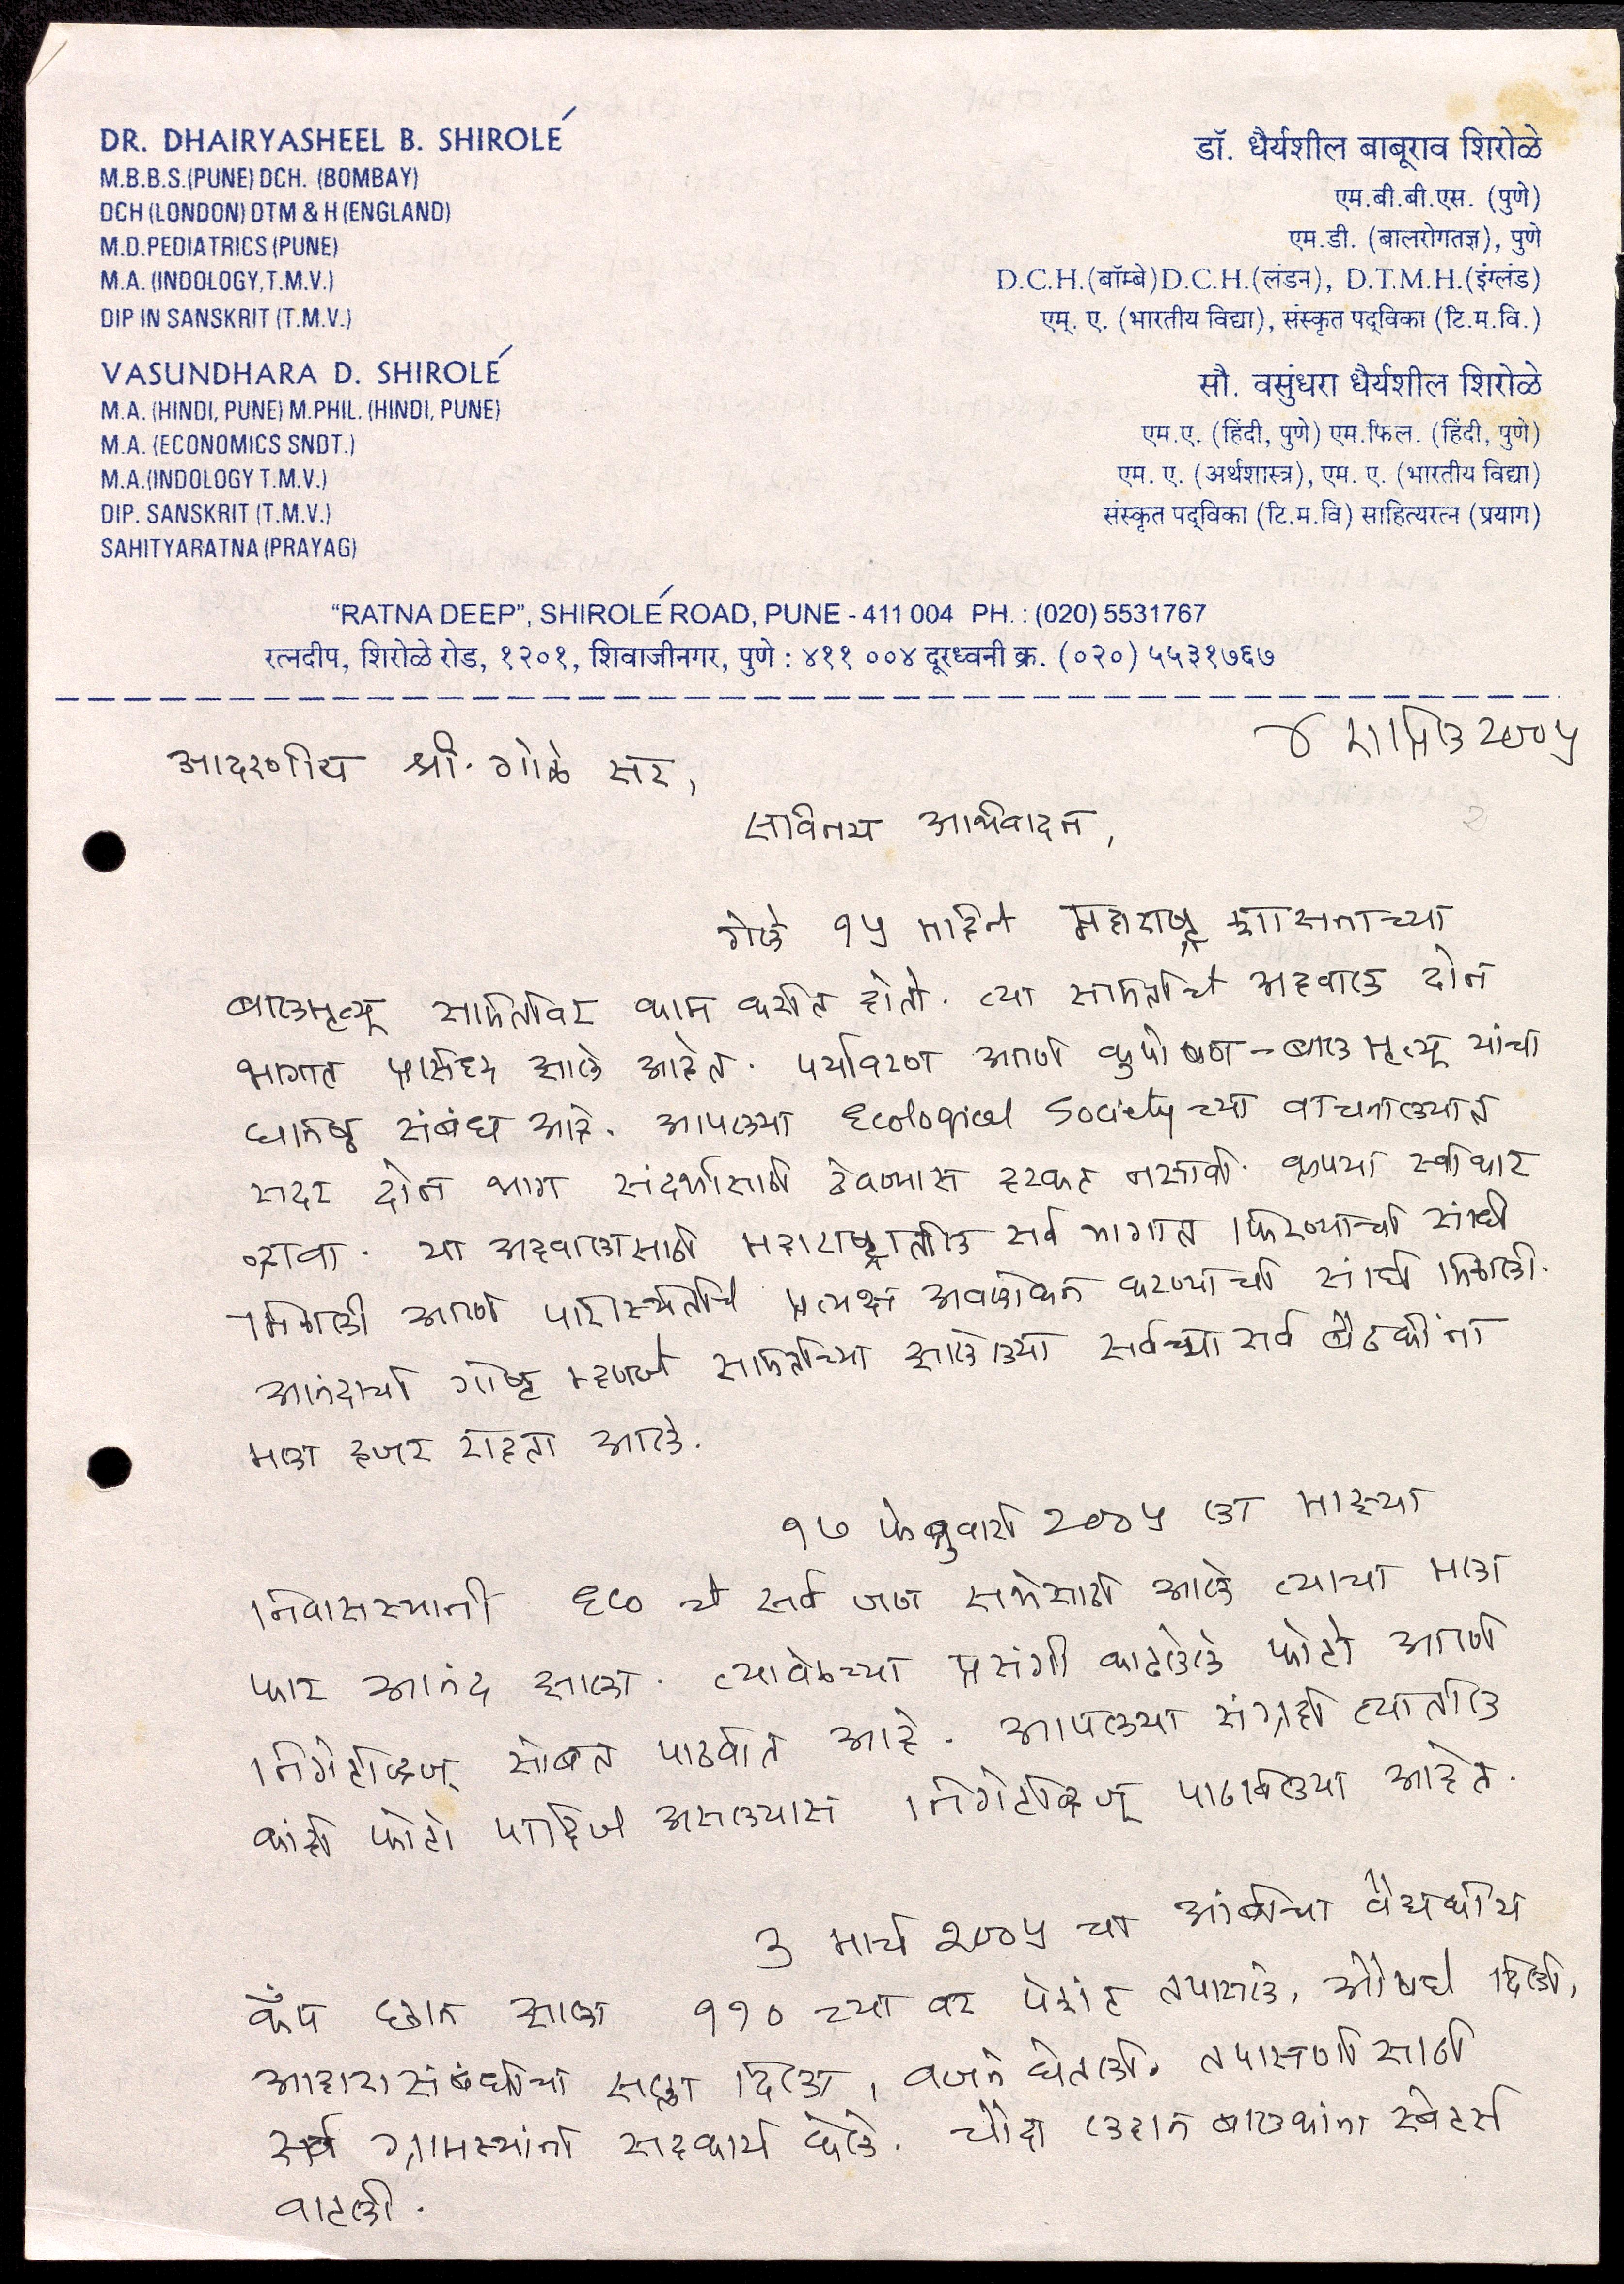 DR. DHAIRYASHEEL B. SHIROLÉ
M.B.B.S.(PUNE) DCH. (BOMBAY)
DCH (LONDON) DTM & H (ENGLAND)
M.D.PEDIATRICS (PUNE)
M.A. (INDOLOGY,T.M.V.)
DIP IN SANSKRIT (T.M.V.)
VASUNDHARA D. SHIROLÉ
M.A. (HINDI, PUNE) M.PHIL. (HINDI, PUNE)
M.A. (ECONOMICS SNDT.)
M.A.(INDOLOGY T.M.V.)
DIP. SANSKRIT (T.M.V.)
SAHITYARATNA (PRAYAG)
डॉ. धैर्यशील बाबूराव शिरोळे
एम.बी.बी.एस. (पुणे)
एम.डी. (बालरोगतज्ञ), पुणे
D.C.H.(बॉम्बे)D.C.H.(लंडन), D.T.M.H.(इंग्लंड)
एम्. ए. (भारतीय विद्या), संस्कृत पद्विका (टि.म.वि.)
सौ. वसुंधरा धैर्यशील शिरोळे
एम.ए. (हिंदी, पुणे) एम.फिल. (हिंदी, पुणे)
एम. ए. (अर्थशास्त्र), एम. ए. (भारतीय विद्या)
संस्कृत पद्विका (टि.म.वि) साहित्यरत्न (प्रयाग)
“RATNA DEEP”, SHIROLÉ ROAD, PUNE - 411 004 PH. : (020) 5531767
रत्नदीप, शिरोळे रोड, १२०१, शिवाजीनगर, पुणे : ४११ ००४ दूरध्वनी क्र. (०२०) ५५३१७६७
४ एप्रिल २००५
आदरणीय श्री. गोळे सर,
सविनय अभिवादन,
गेले १५ महिने महाराष्ट्र शासनाच्या
बालमृत्यू समितीवर काम करीत होतो. त्या समितीचे अहवाल दोन
भागात प्रसिध्द झाले आहेत. पर्यावरण आणि कुपोषण - बालमृत्यू यांचा
घनिष्ठ संबंध आहे. आपल्या Ecological Society च्या वाचनालयात
सदर दोन भाग संदर्भासाठी ठेवण्यास हरकत नसावी. कृपया स्वीकार
व्हावा. या अहवालासाठी महाराष्ट्रातील सर्व भागात फिरण्याची संधी
मिळाली आणि परिस्थितीचे प्रत्यक्ष अवलोकन करण्याची संधी मिळाली.
आनंदाची गोष्ट म्हणजे समितीच्या झालेल्या सर्वच्या सर्व बैठकींना
मला हजर राहता आले.
१७ फेब्रुवारी २००५ ला माझ्या
निवासस्थानी ६८० चे सर्व जण सभेसाठी आले त्याचा मला
फार आनंद झाला. त्यावेळच्या प्रसंगी काढलेले फोटो आणि
निगेटीव्हज् सोबत पाठवीत आहे. आपल्या संग्रही त्यातील
कांही फोटो पाहिजे असल्यास निगेटीव्हज् पाठविल्या आहेत.
३ मार्च २००५ चा आंबीचा वैद्यकीय
कँप छान झाला ११० च्या वर पेशंट तपासले, औषधे दिली,
आहारासंबंधीचा सल्ला दिला, वजने घेतली. तपासणी साठी
सर्व ग्रामस्थांनी सहकार्य केले. चौदा लहान बालकांना स्वेटर्स
वाटली.